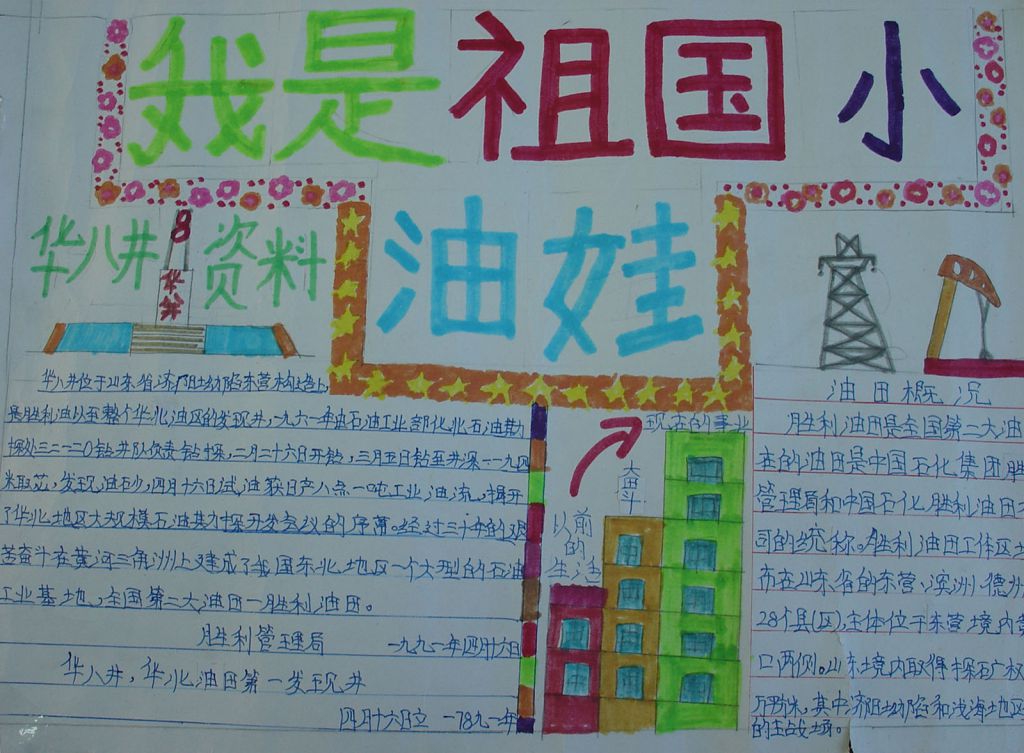 我是祖国小
油娃
华八井
资料
8
华井
华八井位于山东省济阳坳陷东营构造上
是胜利油以至整个华北油区的发现井,一九六一年由石油工业部化北石油勘
探处三二一二0钻井队负责钻探,二月二十六日开钻,三月五日钻至井深一一九四
米取芯,发现油砂,四月十六日试油获日产八点一吨工业油流,揭开
了华北地区大规模石油其力探开发会议的序幕。经过三十年的艰
苦奋斗在黄河三角洲上建成了我国东北地区一个大型的石油
工业基地,全国第二大油田一胜利油田。
胜利管理局 一九九一年四月十六日
华八井,华北油田第一发现井
四月十六日立 一789九一年
现在的事业
大奋斗
以前
的
生活
油田概况
胜利油田是全国第二大油
在的油田是中国石化集团胜
管理局和中国石化胜利油田
司的统称。胜利油田工作区
布在山东省的东营、滨州、德州
28个县(区),主体位于东营境内黄
口两侧。山东境内取得探矿权
万平米,其中济阳坳陷和浅海地区
的主战场。